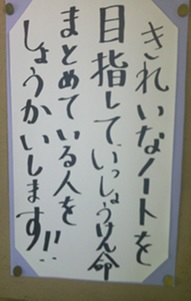 きれいなノートを
目指して、いっしょうけん命
まとめている人を
しょうかいします!!